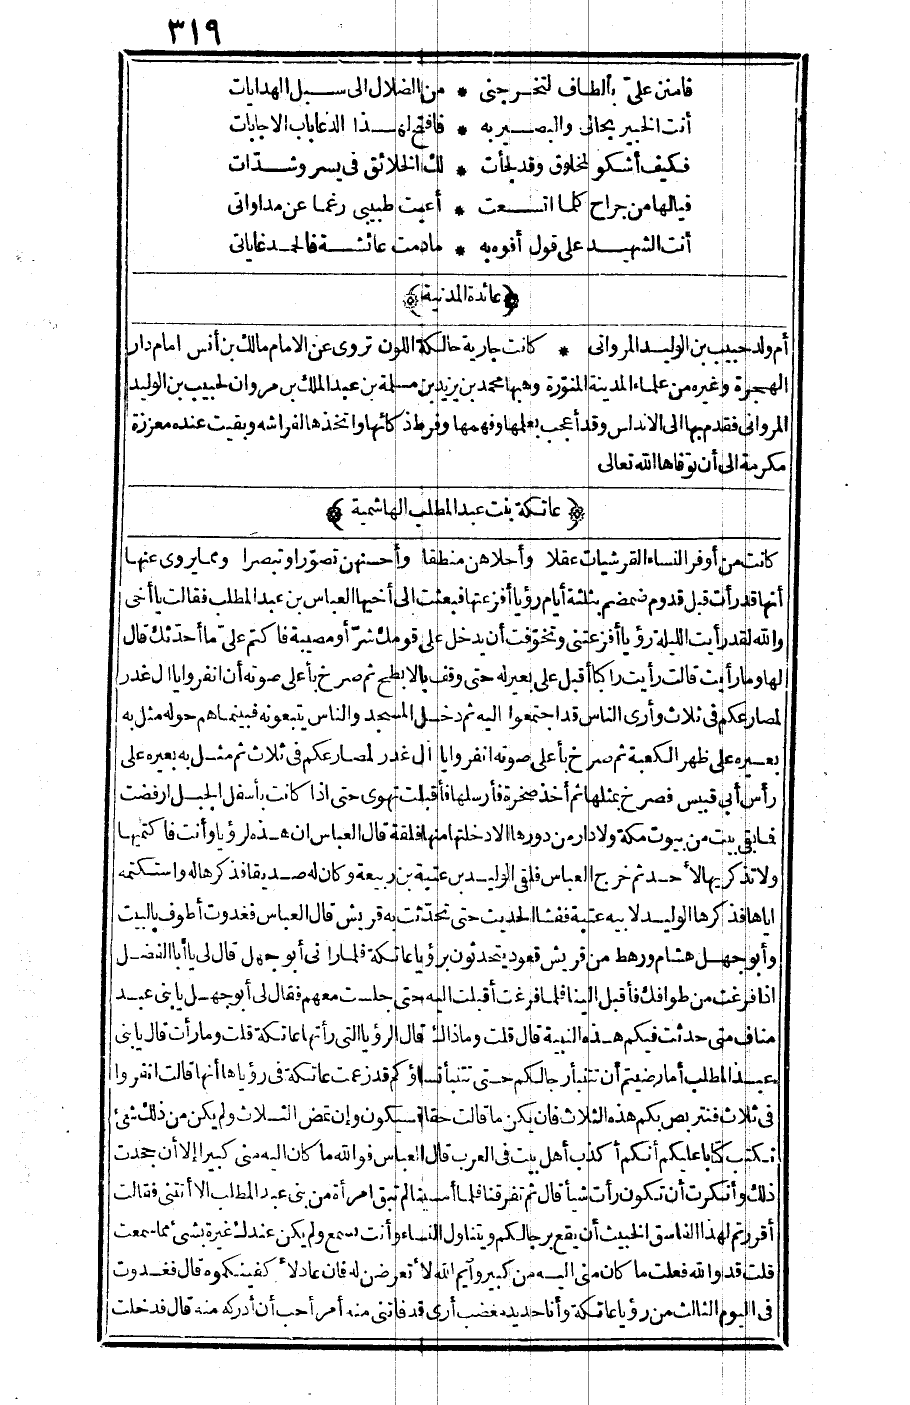 ٣١٩
فامنن علىّ بألطاف لتخرجنى * من الضلال الى سبل الهدايات
أنت الخبير بحالى والبصير به * فافتح لهذا الدعاباب الاجابات
فكيف أشكو لمخلوق وقد لجأت * لك الخلائق فى يسر وشدّات
فيالها من جراح كلما اتسعت * أعيت طبيبى رغما عن مداواتى
أنت الشهيد على قول أفوه به * مادمت عائشة فالحمد غاياتى
﴿عائدة المدنية﴾
أم ولد حبيب بن الوليد المروانى * كانت جارية حالكة اللون تروى عن الامام مالك بن أنس امام دار
الهجرة وغيره من علماء المدينة المنوّرة وهبها محمد بن يزيد بن مسلمة بن عبد الملك بن مروان لحبيب بن الوليد
المروانى فقدم بها الى الاندلس وقد أعجب بعلمها وفهمها وفرط ذكائها واتخذها لفراشه وبقيت عنده معززة
مكرمة الى أن توفاها الله تعالى
﴿عاتكة بنت عبد المطلب الهاشمية﴾
كانت من أوفر النساء القرشيات عقلا وأحلاهن منطقا وأحسنهن تصوّرا وتبصرا ومما يروى عنها
أنها قد رأت قبل قدوم ضمضم بثلثة أيام رؤيا أفزعتها فبعثت الى أخيها العباس بن عبد المطلب فقالت يا أخى
والله لقد رأيت الليلة رؤيا أفزعتنى وتخوّفت أن يدخل على قومك شرّ أو مصيبة فاكتم علىّ ما أحدّثك قال
لها وما رأيت قالت رأيت راكبا أقبل على بعير له حتى وقف بالابطح ثم صرخ بأعلى صوته أن انفروا يا ال غدر
لمصارعكم فى ثلاث وأرى الناس قد اجتمعوا اليه ثم دخل المسجد والناس يتبعونه فبينما هم حوله مثل به
بعيره على ظهر الكعبة ثم صرخ بأعلى صوته انفروا يا آل غدر لمصارعكم فى ثلاث ثم مثل به بعيره على
رأس أبى قبيس فصرخ بمثلها ثم أخذ صخرة فأرسلها فأقبلت تهوى حتى اذا كانت بأسفل الجبل ارفضت
فما بقى بيت من بيوت مكة ولا دار من دورها الا دخلتها منها فلقة قال العباس ان هذه لرؤيا وأنت فاكتميها
ولا تذكريها لأحد ثم خرج العباس فلقى الوليد بن عتبة بن ربيعة وكان له صديقا فذكرها له واستكتمه
اياها فذكرها الوليد لابيه عتبة ففشا الحديث حتى تحدّثت به قريش قال العباس فغدوت أطوف بالبيت
وأبو جهل هشام ورهط من قريش قعود يتحدثون برؤيا عاتكة فلما رانى أبو جهل قال لى يا أبا الفضل
اذا فرغت من طوافك فأقبل الينا فلما فرغت أقبلت اليه حتى جلست معهم فقال لى أبو جهل يا بنى عبد
مناف متى حدثت فيكم هذه النبية قال قلت وماذاك قال الرؤيا التى رأتها عاتكة قلت وما رأت قال يا بنى
عبد المطلب أما رضيتم أن تتنبأ رجالكم حتى تتنبأ نساؤكم قد زعمت عاتكة فى رؤياها أنها قالت انفروا
فى ثلاث فنتربص بكم هذه الثلاث فان يكن ما قالت حقا فسيكون وإن تمض الثلاث ولم يكن من ذلك شئ
نكتب كتابا عليكم أنكم أكذب أهل بيت فى العرب قال العباس فوالله ما كان اليه منى كبير إلا أن جحدت
ذلك وأنكرت أن تكون رأت شيأ قال ثم تفرقنا فلما أمسينا لم تبق امرأة من بنى عبد المطلب الا أتتنى فقالت
أقررتم لهذا الفاسق الخبيث أن يقع برجالكم ويتناول النساء وأنت تسمع ولم يكن عندك غيرة بشئ مما سمعت
قلت قد والله فعلت ما كان منى اليه من كبير وأيم الله لأتعرضن له فان عاد لأكفينكموه قال فغدوت
فى اليوم الثالث من رؤيا عاتكة وأنا حديد مغضب أرى قد فاتنى منه أمر أحب أن أدركه منه قال فدخلت